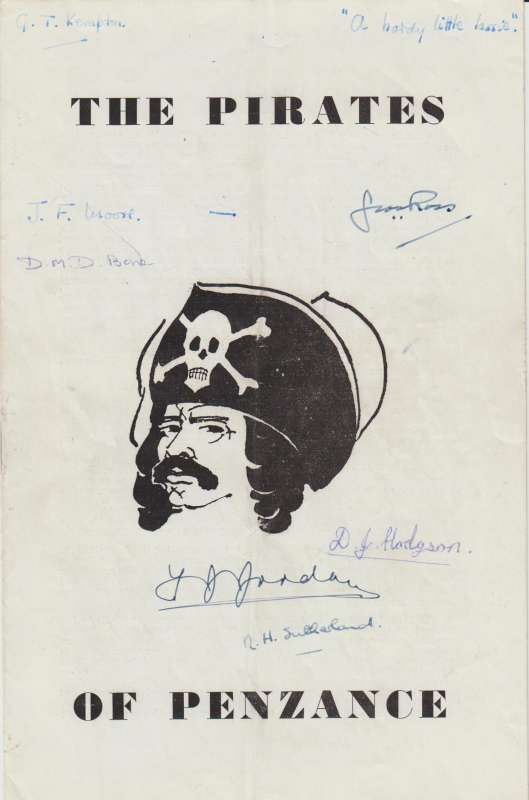 G. T. Kempton
"A hardy little horse".
THE PIRATES
J. F. Moore.
Ross
D. M. D.
D. J. Hodgson.
Jordan
R. H. Sutherland.
OF PENZANCE